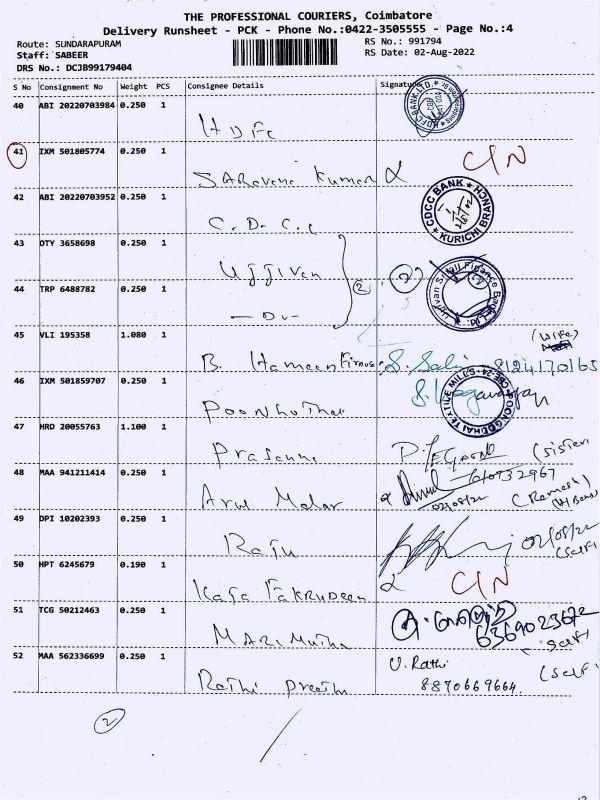 THE PROFESSIONAL COURIERS, Coimbatore
Delivery Runsheet - PCK - Phone No.:0422-3505555 - Page No.:4
Route: SUNDARAPURAM
RS No.: 991794
Staff: SABEER
RS Date: 02-Aug-2022
DRS No.: DCJB99179404
S No Consignment No Weight PCS Consignee Details Signature
40 ABI 20220703984 0.250 1
HDFC
41 IXM 501805774 0.250 1 CIN
Saravana Kumar
42 ABI 20220703952 0.250 1
C.D.C.C
CDCC BANK KURICHI BRANCH
43 DTY 3658698 0.250 1
Ujjivan
44 TRP 6488782 0.250 1
-Do-
2
2
45 VLI 195358 1.080 1
(Wife)
B. Hameen Firnos S. Sali 8124170165
46 IXM 501859707 0.250 1
47 HRD 20055763 1.100 1
Prasanna
(Sister
48 MAA 941211414 0.250 1
Arul Malar
02/08/22
(Ramesh)
49 DPI 10202393 0.250 1
Raju
02/08/22
(Self)
50 HPT 6245679 0.190 1
Kaja Fakrudeen
CIN
51 TCG 50212463 0.250 1
Mari Muthu
6369023672
Self
52 MAA 562336699 0.250 1
Rathi Preethi
U. Rathi
(Self)
8870669664.
2